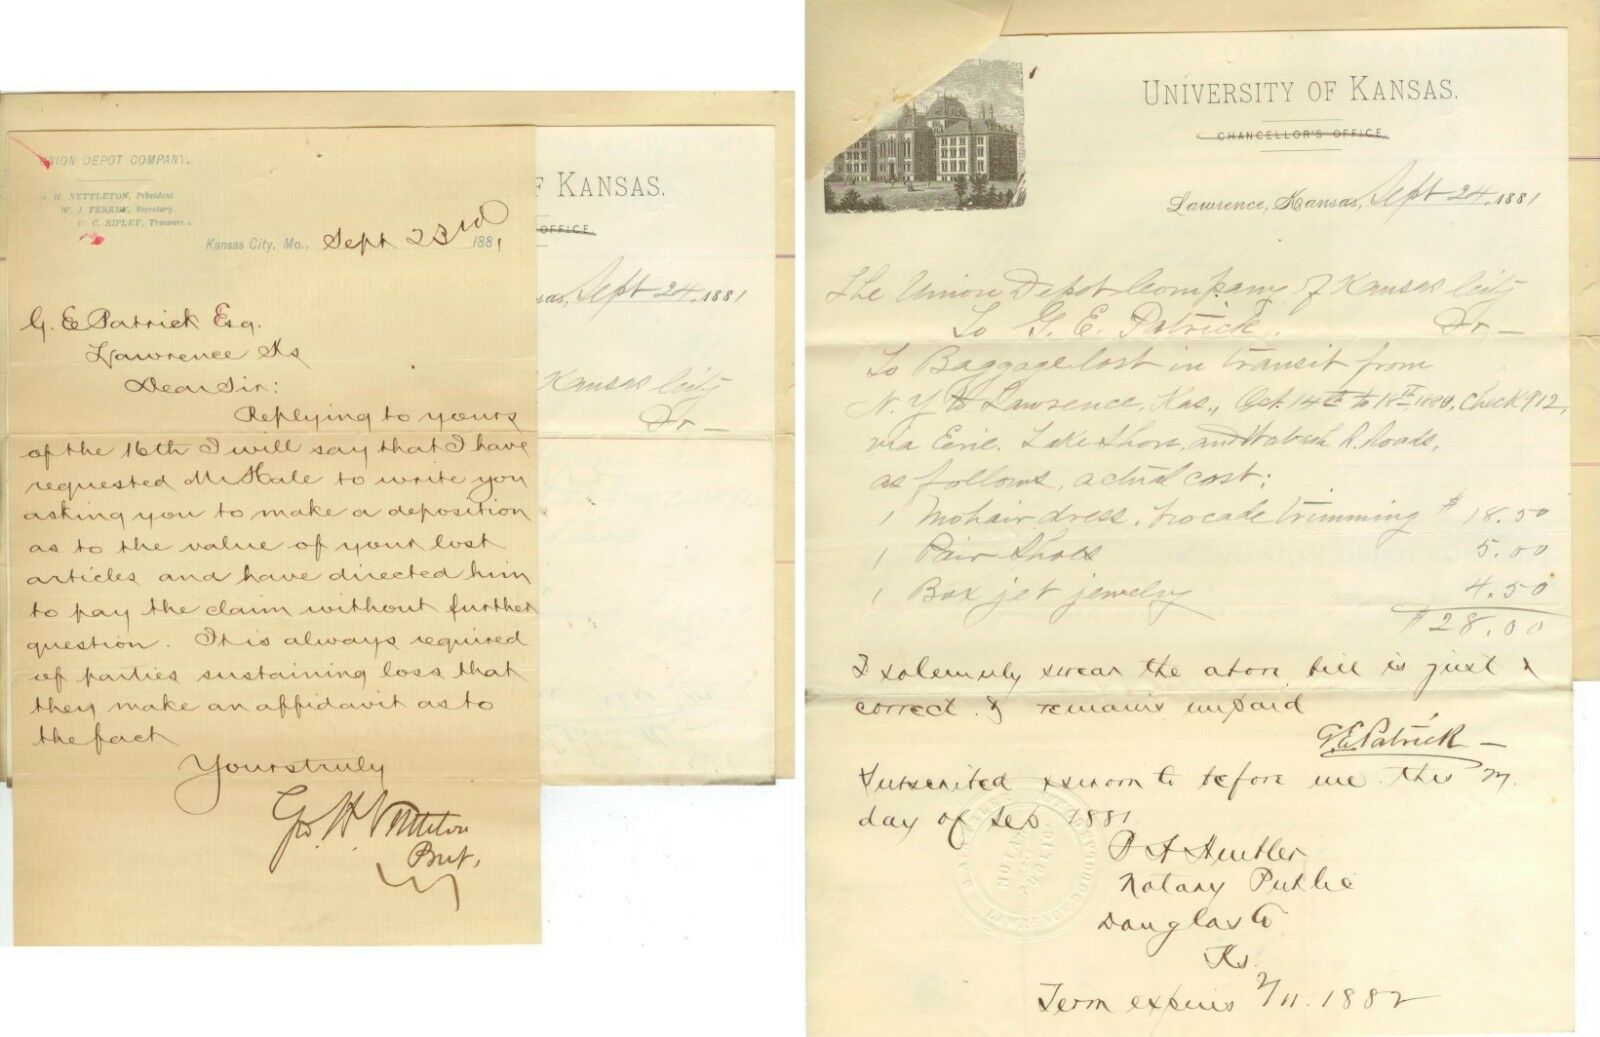 UNION DEPOT COMPANY.
G. H. NETTLETON, President
W. J. FERREY, Secretary.
C. C. RIPLEY, Treasurer.
Kansas City, Mo., Sept 23rd 1881
G. E. Patrick Esq.
Lawrence Ks
Dear Sir:
Replying to yours
of the 16th I will say that I have
requested Mr Hale to write you
asking you to make a deposition
as to the value of your lost
articles and have directed him
to pay the claim without further
question. It is always required
of parties sustaining loss that
they make an affidavit as to
the fact
Yours truly
Geo. H. Nettleton
Prest.
F KANSAS.
OFFICE.
sas, Sept 24, 1881
Kansas City
Dr —
UNIVERSITY OF KANSAS.
CHANCELLOR'S OFFICE.
Lawrence, Kansas, Sept 24, 1881
The Union Depot Company of Kansas City
To G. E. Patrick. Dr —
To Baggage lost in transit from
N. Y. to Lawrence, Kas., Oct. 14th to 18th 1880, Check 912,
via Erie, Lake Shore, and Wabash R. Roads,
as follows, actual cost:
1 Mohair dress, brocade trimming $ 18.50
1 Pair Shoes 5.00
1 Box jet jewelry 4.50
$28.00
I solemnly swear the above bill is just &
correct & remains unpaid
G. E. Patrick —
Subscribed & sworn to before me this
day of Sep 1881
Notary Public
Douglas Co
Ks.
Term expires 2/11. 1882
NOTARY
PUBLIC